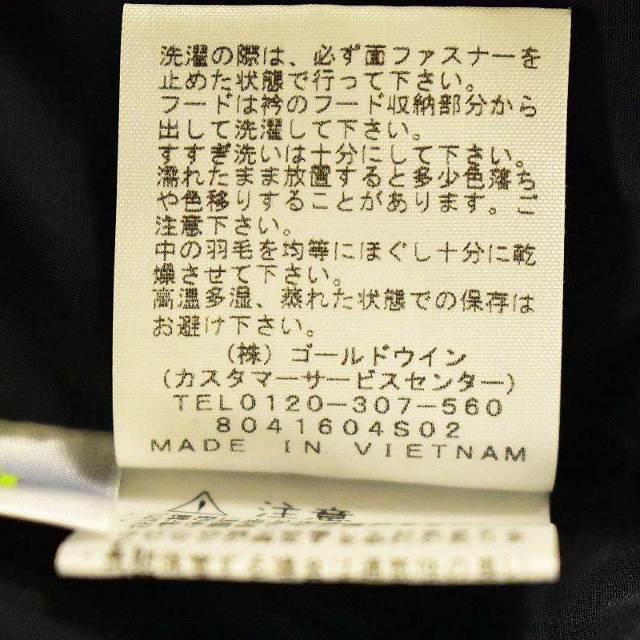 洗濯の際は、必ず面ファスナーを
止めた状態で行って下さい。
フードは衿のフード収納部分から
出して洗濯して下さい。
すすぎ洗いは十分にして下さい。
濡れたまま放置すると多少色落ち
や色移りすることがあります。ご
注意下さい。
中の羽毛を均等にほぐし十分に乾
燥させて下さい。
高温多湿、蒸れた状態での保存は
お避け下さい。
(株)ゴールドウイン
(カスタマーサービスセンター)
TEL0120-307-560
8041604S02
MADE IN VIETNAM
注意